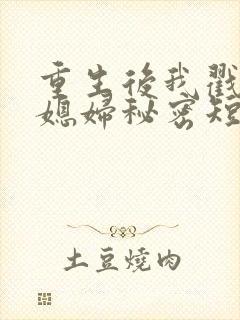 重生後我戳
媳婦秘密短
土豆燒肉